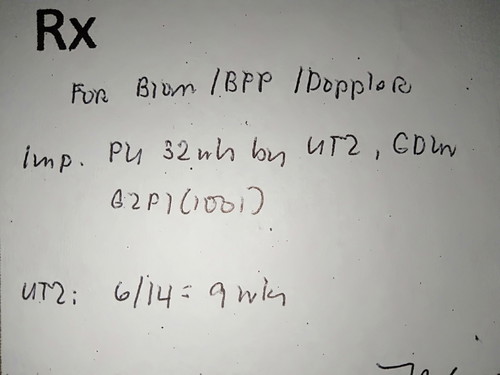 Rx
For Biom /BPP /Doppler
imp. PU 32 wks by UTZ, GDM
G2P1(1001)
UTZ: 6/14 = 9 wks